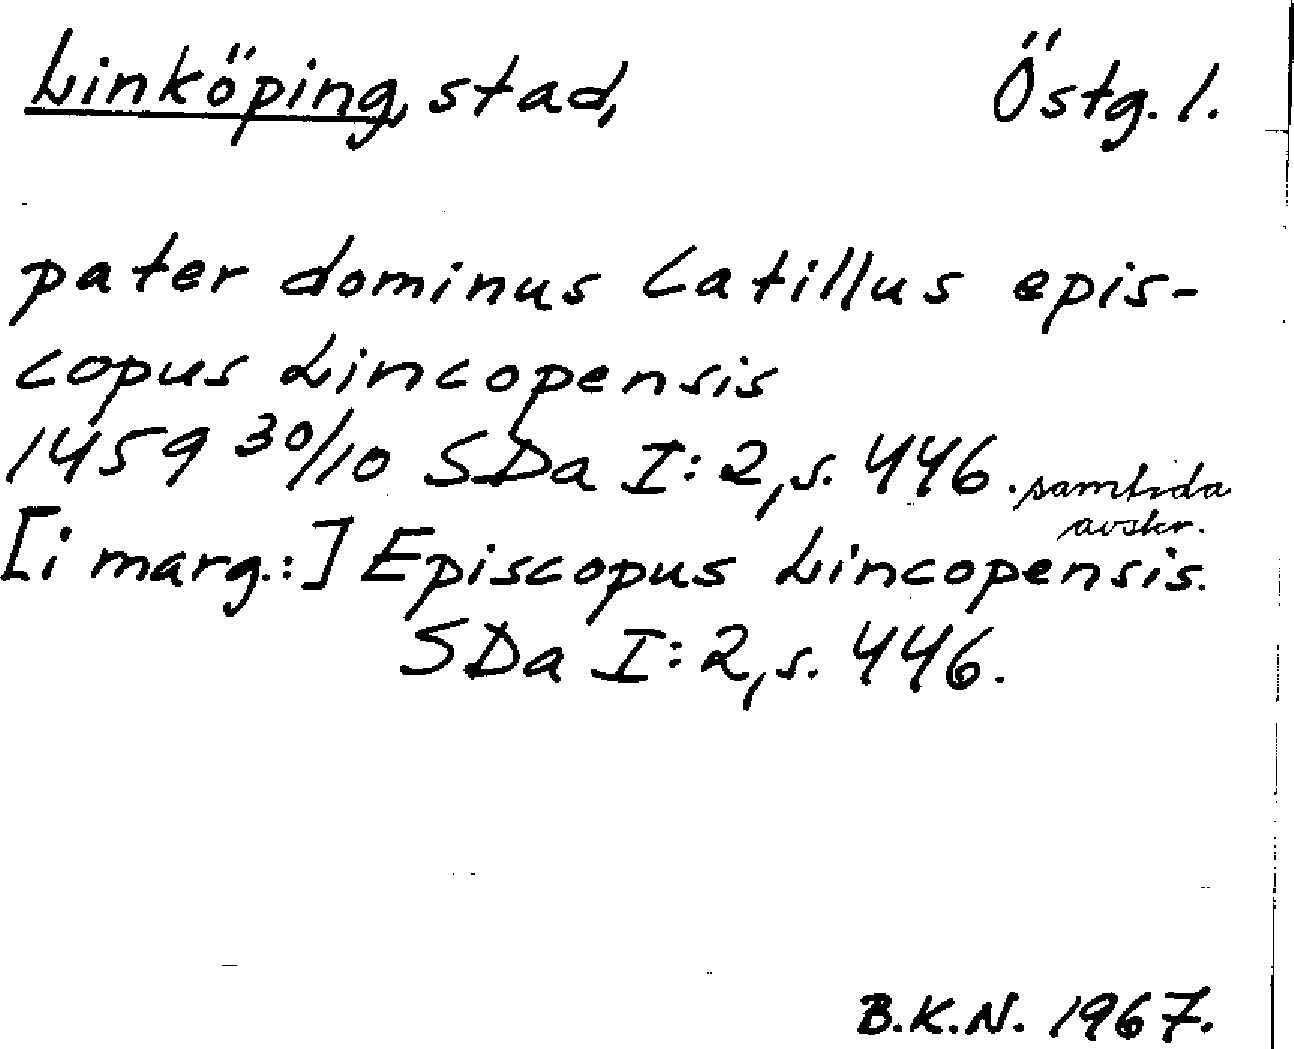 Linköping, stad, Östg. l.
pater dominus Catillus epis-
copus Lincopensis
1459 30/10 SDa I:2, s. 446. samtida
avskr.
[i marg.:] Episcopus Lincopensis.
SDa I:2, s. 446.
B.K.N. 1967.